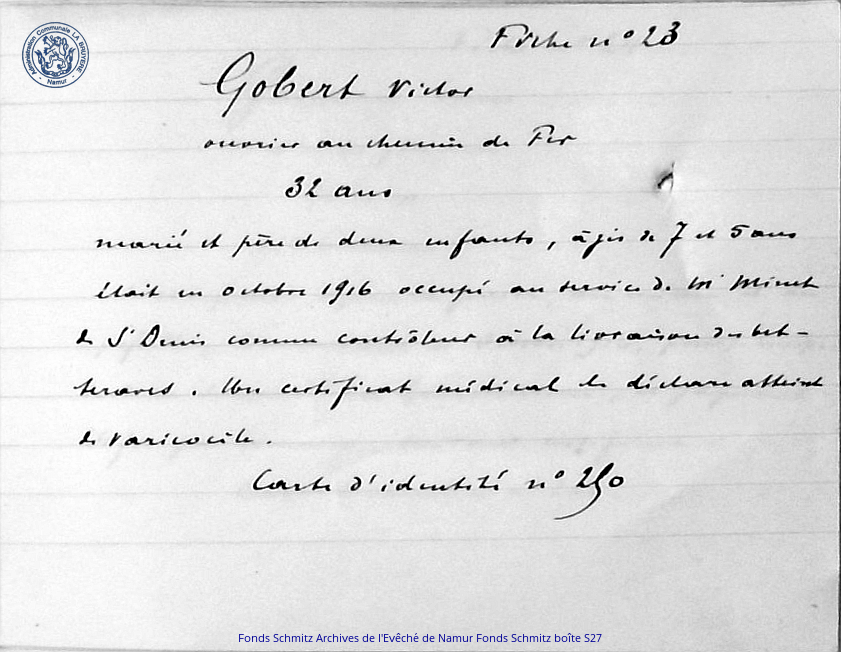 Administration Communale LA BRUYERE
Namur
Fiche n° 23
Gobert Victor
ouvrier au chemin de Fer
32 ans
marié et père de deux enfants, âgés de 7 et 5 ans
était en octobre 1916 occupé au service de Mr Minet
de St Denis comme contrôleur à la livraison des bet-
teraves. Un certificat médical le déclare atteint
de varicocèle.
Carte d'identité n° 250
Fonds Schmitz Archives de l'Evêché de Namur Fonds Schmitz boîte S27